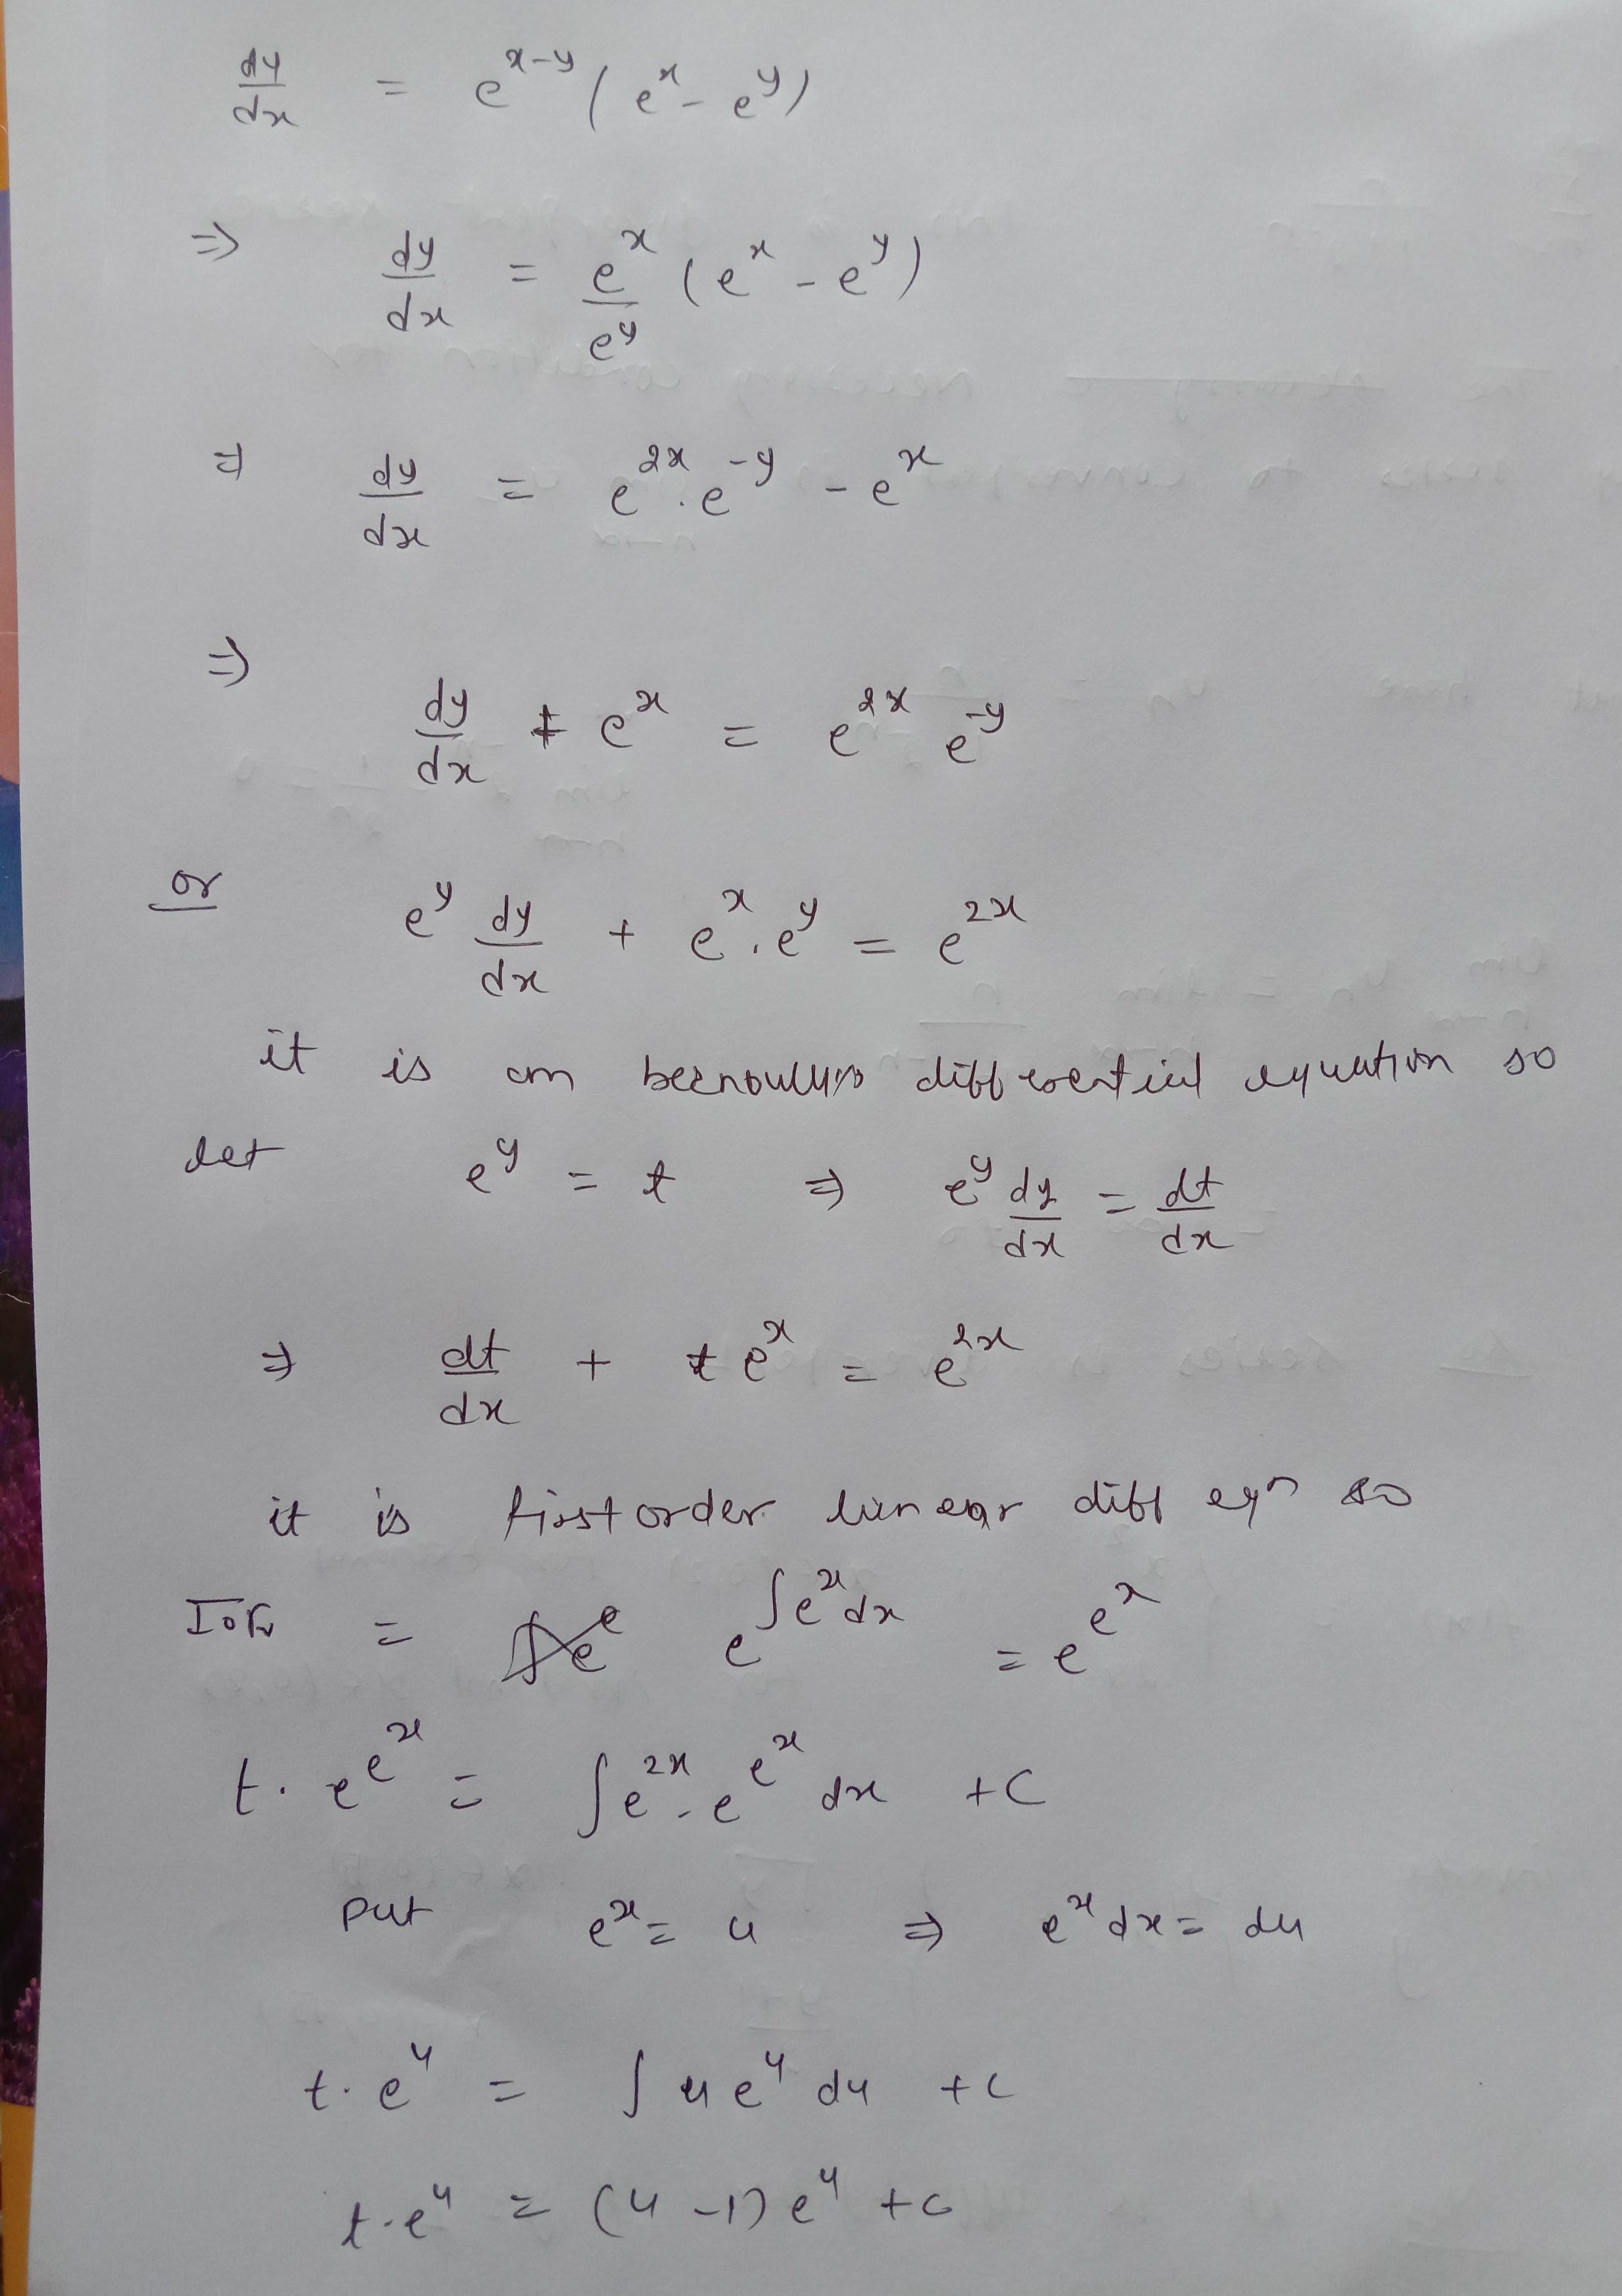 dy/dx = e^{x-y} (e^x - e^y)
⇒ dy/dx = e^x/e^y (e^x - e^y)
⇒ dy/dx = e^{2x} . e^{-y} - e^x
⇒ dy/dx + e^x = e^{2x} e^{-y}
or e^y dy/dx + e^x . e^y = e^{2x}
it is an differential equation so
let e^y = t ⇒ e^y dy/dx = dt/dx
⇒ dt/dx + t e^x = e^{2x}
it is first order linear diff eqn so
I.F. = e^{∫e^x dx} = e^{e^x}
t. e^{e^x} = ∫e^{2x} . e^{e^x} dx + C
put e^x = u ⇒ e^x dx = du
t. e^u = ∫ u e^u du + C
t. e^u = (u - 1) e^u + C